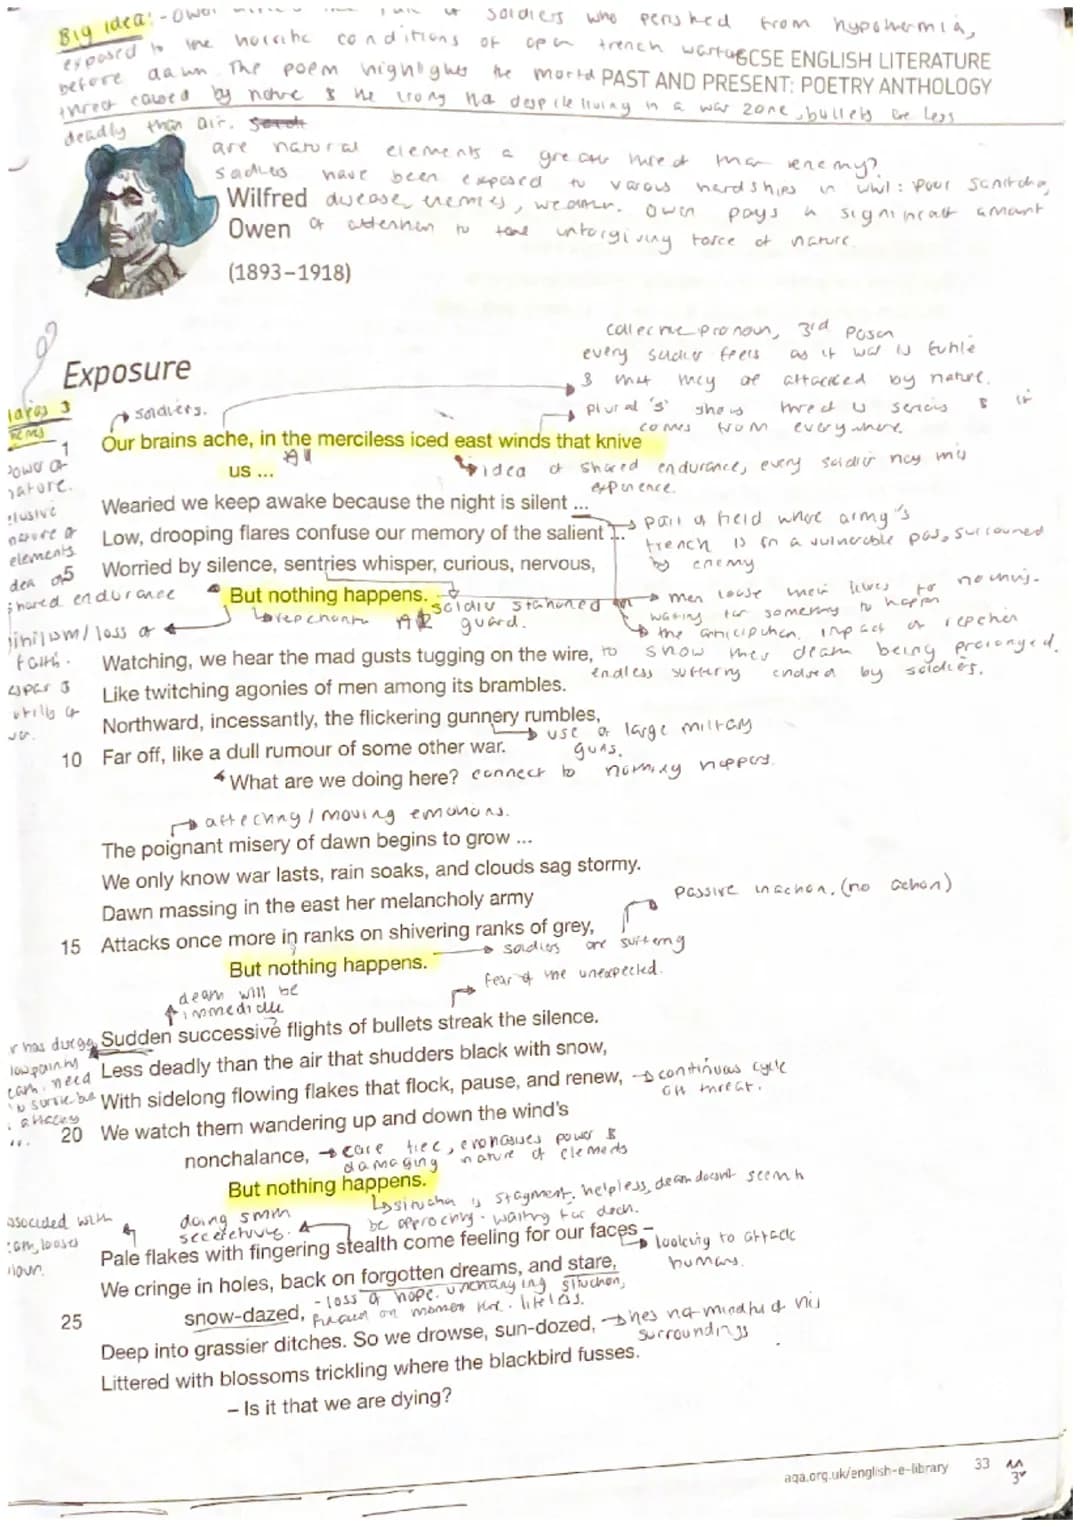 Big idea:- Owen
soldiers who perished from hypothermia,
exposed to the horrific conditions of open trench warfare
GCSE ENGLISH LITERATURE
before dawn. The poem highlights the mortal
PAST AND PRESENT: POETRY ANTHOLOGY
threat caused by nature & the irony that despite living in a war zone, bullets are less
deadly than air.
are natural elements a greater threat than enemy?
soldiers have been exposed to various hardships in WWI: poor
Wilfred disease, enemies, weather. Owen pays a significant amount
Owen of attention to the unforgiving force of nature.
(1893–1918)
collective pronoun, 3rd person
every soldier feels as if war is futile
& that they are attacked by nature.
Exposure
soldiers.
plural 's' shows threat is serious & it
comes from everywhere.
1 Our brains ache, in the merciless iced east winds that knive
us ...
idea of shared endurance, every soldier
experience.
power of
nature.
Wearied we keep awake because the night is silent ...
Low, drooping flares confuse our memory of the salient ...
part of field where army's
trench is in a vulnerable pos, surrounded
by enemy
elements
5 Worried by silence, sentries whisper, curious, nervous,
idea of
shared endurance
But nothing happens.
soldier stationed on
guard.
men loose their lives to nothing.
waiting for something to happen
the anticipation, impact of
nihilism/loss of
faith.
Watching, we hear the mad gusts tugging on the wire,
to show their death being prolonged.
endless suffering endured by soldiers.
Like twitching agonies of men among its brambles.
Northward, incessantly, the flickering gunnery rumbles,
use of large military
guns.
10 Far off, like a dull rumour of some other war.
What are we doing here? connect to nothing happens.
affecting / moving emotions.
The poignant misery of dawn begins to grow ...
We only know war lasts, rain soaks, and clouds sag stormy.
Dawn massing in the east her melancholy army
passive inaction. (no action)
15 Attacks once more in ranks on shivering ranks of grey,
But nothing happens.
soldiers are suffering
fear of the unexpected.
death will be
Sudden successive flights of bullets streak the silence.
Less deadly than the air that shudders black with snow,
With sidelong flowing flakes that flock, pause, and renew,
continuous cycle
on threat.
20 We watch them wandering up and down the wind's
nonchalance,
care free, emphasises power &
damaging nature of elements
But nothing happens.
helpless, death doesnt seem to
be approaching. waiting for death.
doing smth
Pale flakes with fingering stealth come feeling for our faces –
looking to attack
humans.
We cringe in holes, back on forgotten dreams, and stare,
25 snow-dazed,
- loss of hope. unchanging situation,
Deep into grassier ditches. So we drowse, sun-dozed,
hes not mindful of his
surroundings
Littered with blossoms trickling where the blackbird fusses.
– Is it that we are dying?
aqa.org.uk/english-e-library 33